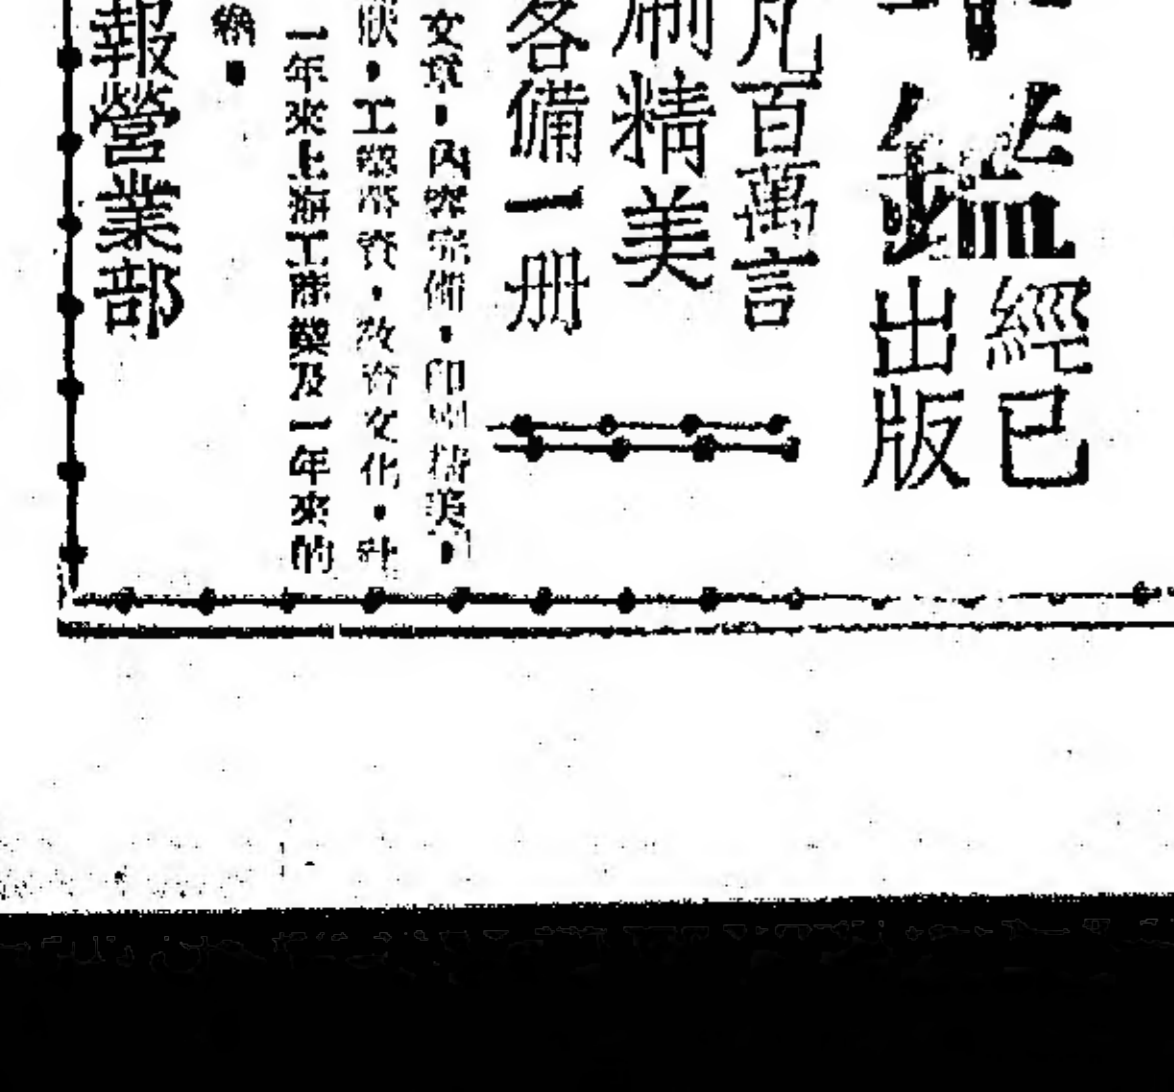 年鑑
經已
出版
凡百萬言
刷精美
各備一册
文章，內容完備，印刷精美，
狀，工業勞資，教育文化，社
一年來上海工商業及一年來的
報營業部